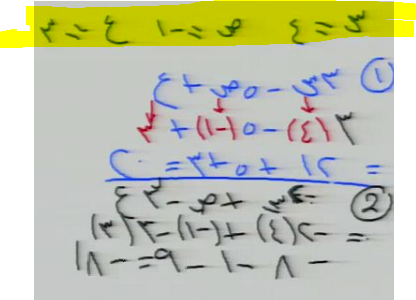 س = ٤ ص = -١ ع = ٣
① ٣س - ٥ص + ع
٣(٤) - ٥(-١) + ٣
= ١٢ + ٥ + ٣ = ٢٠
② -٢س + ص - ٣ع
= -٢(٤) + (-١) - ٣(٣)
-٨ - ١ - ٩ = -١٨